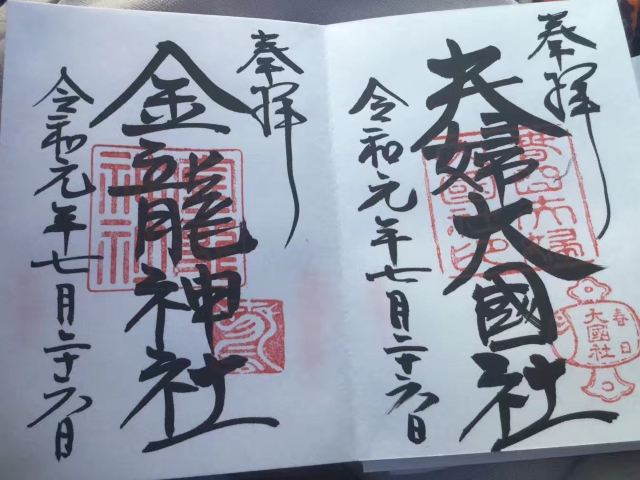 奉拝
夫婦大國社
令和元年七月二十六日
春日
大國社
奉拝
金龍神社
令和元年七月二十六日